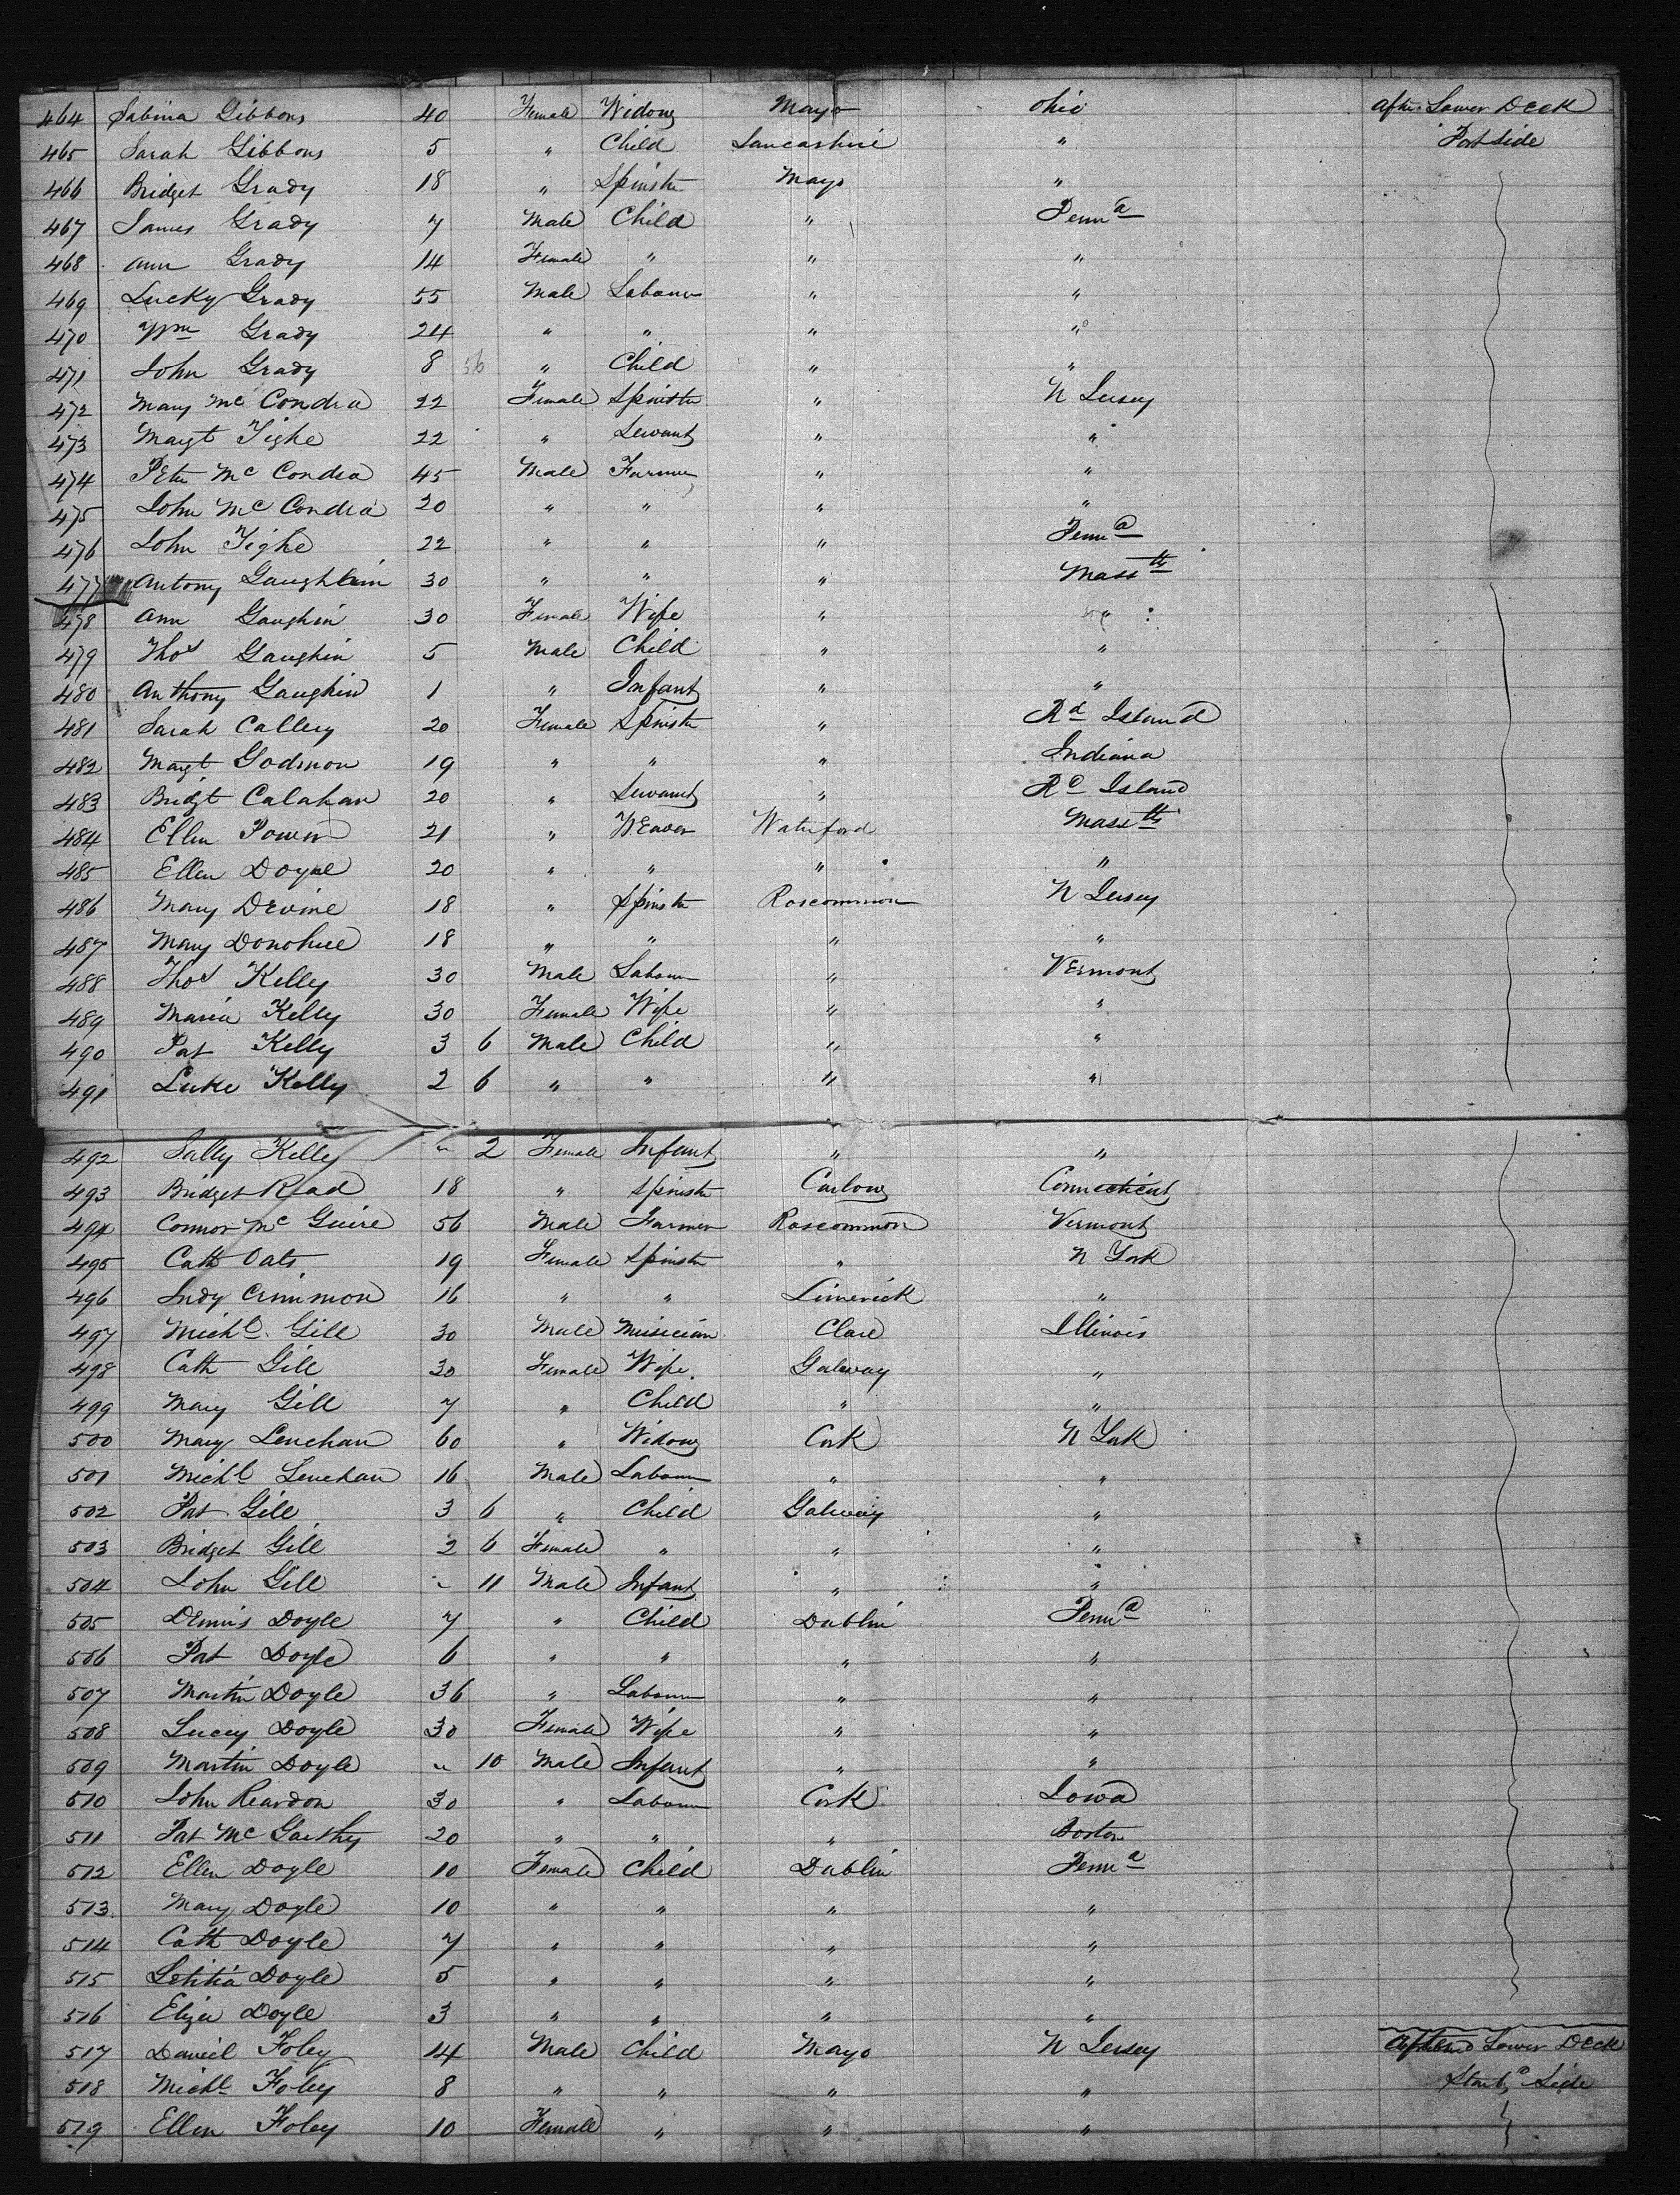 464 Sabina Gibbons 40 Female Widow Mayo Ohio After Lower Deck
465 Sarah Gibbons 5 " Child Lancashire " Port side
466 Bridget Grady 18 " Spinster Mayo "
467 James Grady 7 Male Child " Penn a
468 Ann Grady 14 Female " " "
469 Lucky Grady 55 Male Labourer " "
470 Wm Grady 24 " " " "
471 John Grady 8 " Child " "
472 Mary Mc Condra 22 Female Spinster " N Jersey
473 Margt Tighe 22 " Servant " "
474 Peter Mc Condra 45 Male Farmer " "
475 John Mc Condra 20 " " " "
476 John Tighe 22 " " " Penn a
477 Antony Gaughin 30 " " " Mass tts
478 Ann Gaughin 30 Female Wife " "
479 Thos Gaughin 5 Male Child " "
480 Anthony Gaughin 1 " Infant " "
481 Sarah Callery 20 Female Spinster " Rd Island
482 Margt Godmon 19 " " " Indiana
483 Bridgt Calahan 20 " Servant " Island
484 Ellen Power 21 " Weaver Waterford Mass tts
485 Ellen Doyle 20 " " " "
486 Mary Devine 18 " Spinster Roscommon N Jersey
487 Mary Donohue 18 " " " "
488 Thos Kelly 30 Male Labourer " Vermont
489 Maria Kelly 30 Female Wife " "
490 Pat Kelly 3 6 Male Child " "
491 Luke Kelly 2 6 " " " "
492 Sally Kelly " 2 Female Infant " "
493 Bridget Read 18 " Spinster Carlow Connecticut
494 Connor Mc Guire 56 Male Farmer Roscommon Vermont
495 Cath Oats 19 Female Spinster " N York
496 Judy Crimmon 16 " " Limerick "
497 Michl Gill 30 Male Musician Clare Illinois
498 Cath Gill 30 Female Wife Galway "
499 Mary Gill 7 " Child " "
500 Mary Lenehan 60 " Widow Cork N York
501 Michl Lenehan 16 Male Labourer " "
502 Pat Gill 3 6 " Child Galway "
503 Bridget Gill 2 6 Female " " "
504 John Gill " 11 Male Infant " "
505 Dennis Doyle 7 " Child Dublin Penn a
506 Pat Doyle 6 " " " "
507 Martin Doyle 36 " Labourer " "
508 Lucey Doyle 30 Female Wife " "
509 Martin Doyle " 10 Male Infant " "
510 John Reardon 30 " Labourer Cork Iowa
511 Pat Mc Garthy 20 " " " Boston
512 Ellen Doyle 10 Female Child Dublin Penn a
513 Mary Doyle 10 " " " "
514 Cath Doyle 7 " " " "
515 Letitia Doyle 5 " " " "
516 Eliza Doyle 3 " " " "
517 Daniel Foley 14 Male Child Mayo N Jersey Lower Deck
518 Michl Foley 8 " " " " Starbd Side
519 Ellen Foley 10 Female " " "